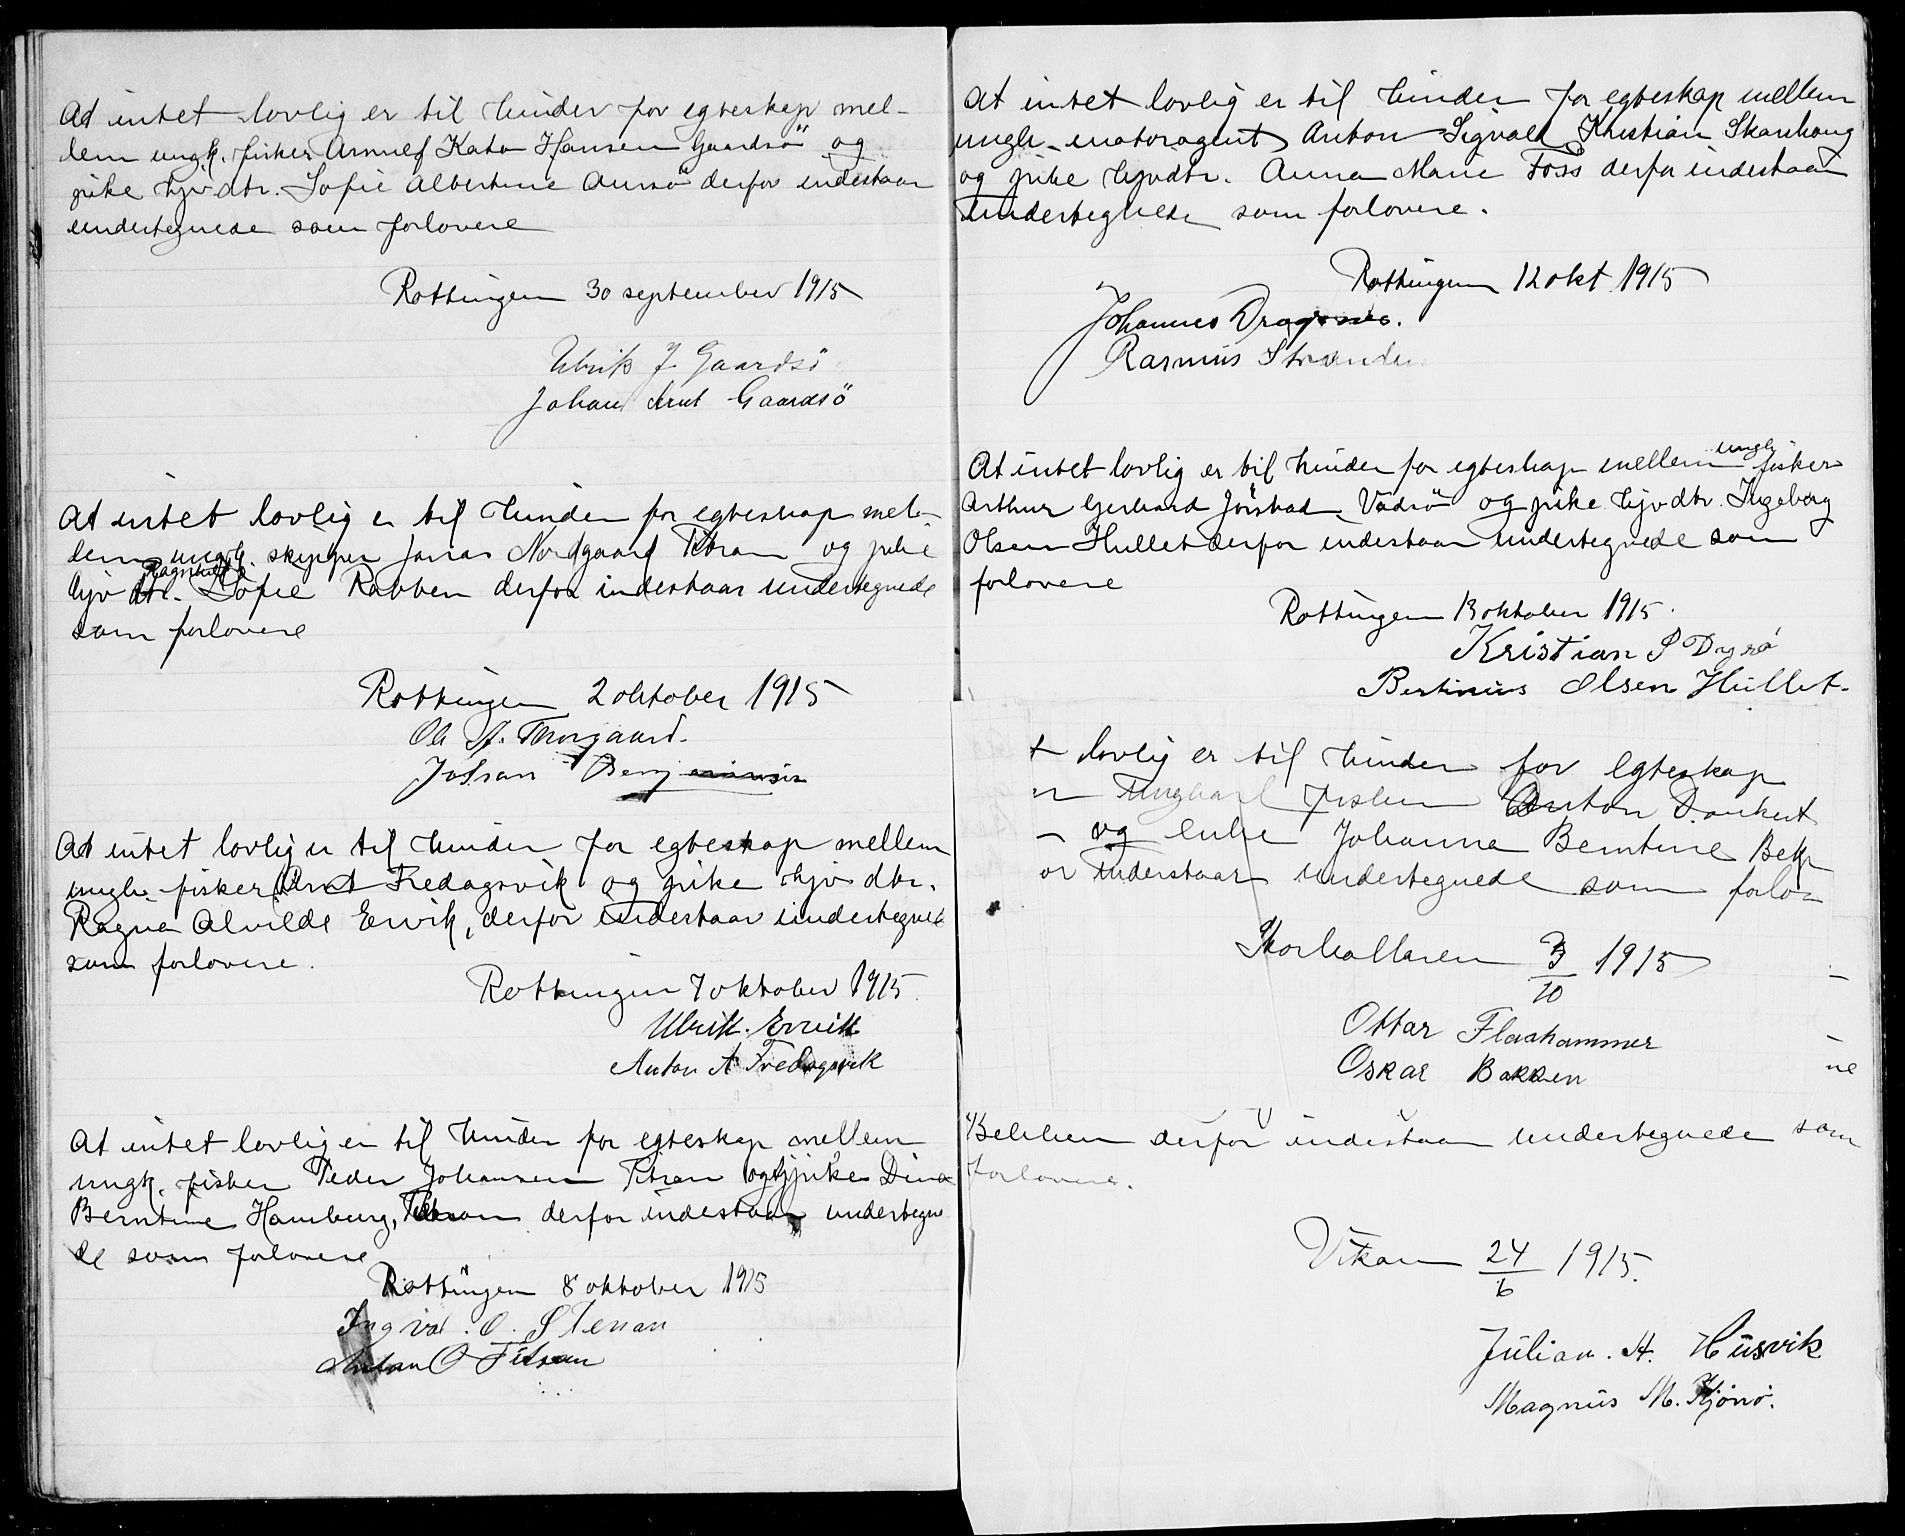 At intet lovlig er til hinder for egteskap mel-
lem ungk. fisker Arnulf Kato Hansen Gaardsö og
pike hjv dtr. Sofie Albertine Aunsö derfor indestaar
undertegnede som forlovere
Rottingen 30 september 1915
Ulrik J Gaardsö
Johan Arnt Gaardsö
At intet lovlig er til hinder for egteskap mel-
lem ungk. skipper Jonas Nordgaard Titran og pike
Ragnhild
hjv dtr. Sofie Rabben derfor indestaar undertegnede
som forlovere
Rottingen 2 oktober 1915
Ole A. Thorgaard.
Johan Benjaminsen
At intet lovlig er til hinder for egteskap mellem
ungk. fisker Arnt Fredagsvik og pike hjv dtr.
Ragna Alvilde Ervik, derfor indestaar undertegnede
som forlovere.
Rottingen 7 oktober 1915.
Ulrik. Ervik
Anton A Fredagsvik
At intet lovlig er til hinder for egteskap mellem
ungk. fisker Peder Johansen Titran og pike Dina
Berntine Hamburg, Titran derfor indestaar undertegne
de som forlovere
Rottingen 8 oktober 1915
Ingval. O. Stenan
Anton O Titran
At intet lovlig er til hinder for egteskap mellem
ungk. motoragent Anton Sigvald Kristian Skarhaug
og pike hjvdtr. Anna Marie Foss derfor indestaar
undertegnede som forlovere.
Rottingen 12 okt 1915
Johannes
Rasmus Strand
At intet lovlig er til hinder for egteskap mellem ungk. fisker
Arthur Gerhard Jörstad, Vadsö og pike hjvdtr. Ingeborg
Olsen Hullet derfor indestaar undertegnede som
forlovere
Rottingen 13 oktober 1915.
Kristian P Dyrø
Bertinius Olsen Hullet.
t lovlig er til hinder for egteskap
m Ungkarl fisker Anton Dankert
og enke Johanna Berntine Bekk
or inderstaar undertegnede som forlo-
Storhallaren 3/10 1915
Ottar Flashammer
Oskar Bakken
ne
Bekken derfor indestaar undertegnede som
forlovere.
Vikan 24/6 1915.
Julian. A. Husvik
Magnus M. Kjönö.